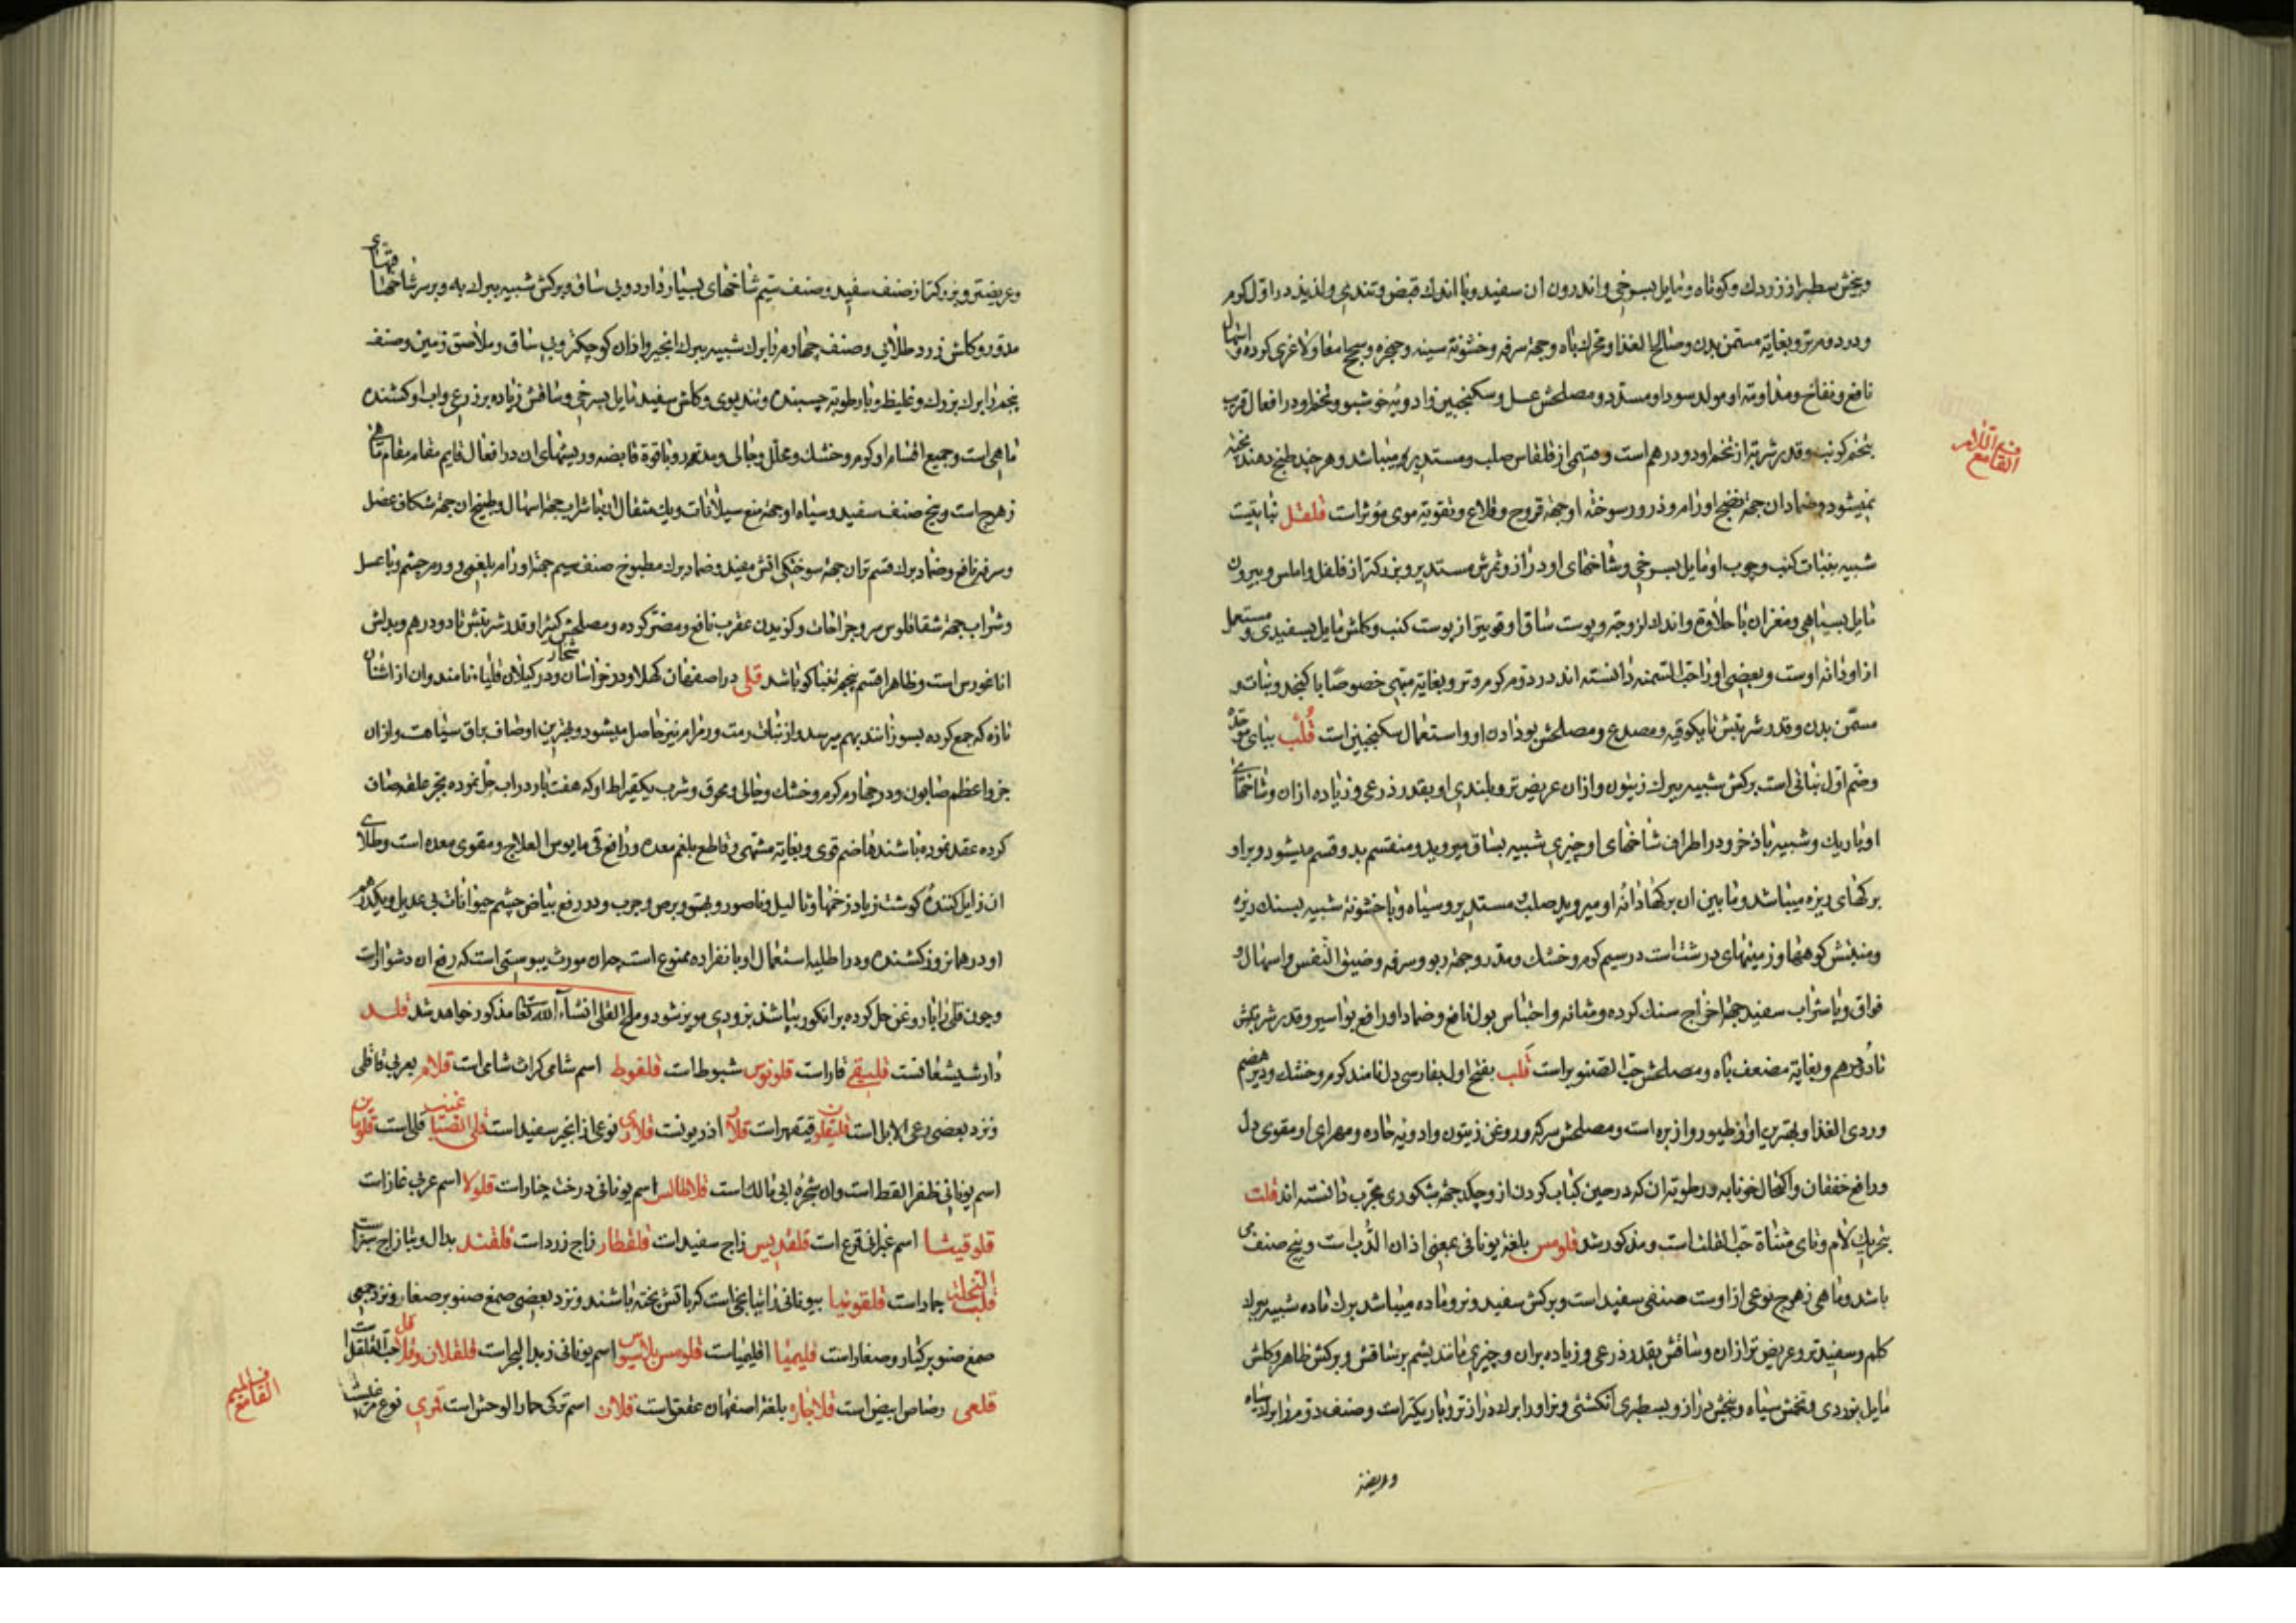 وبیخش سطبرتر از زردک و کوتاه و مایل بسرخی و اندرون ان سفید و با اندک قبض و تندی و لذیذ در اول کرم
و در دوم تر و بغایت مسمن بدن و صالح الغذا و محرک باه و جهة سرفه و خشونة سینه و حنجره و سحج امعا و لاغری کرده و اسهال
نافع و نفاخ و مداومت او مولد سودا و مسدد و مصلحش عسل و سکنجبین و ادویه خوشبو و تخم او در افعال قریب
بتخم کرنب و قدر شربت از تخم او دو درهم است و قسمی از قلقاس صلب و مستدیر میباشد و هر چند طبخ دهند پخته
نمیشود و ضماد ان جهة نضج اورام و ذرور سوختهٔ او جهة قروح و قلاع و تقویة موی مؤثر است قلقل نباتیست
شبیه بنبات کنب و چوب او مایل بسرخی و شاخهای او دراز و ثمرش مستدیر و بزرکتر از فلفل و املس و بیرون
مایل بسیاهی و مغز ان با حلاوة و اندک لزوجة و پوست ساق او قویتر از پوست کنب و کلش مایل بسفیدی و مستعمل
از او دانهٔ اوست و بعضی او را حب السمنه دانسته اند در دوم کرم و تر و بغایة مبهی خصوصا با کنجد و نبات و
مسمن بدن و قدر شربتش تا یکوقیه و مصدع و مصلحش بو دادن او و استعمال سکنجبین است قُلب بتای موحده
و ضم اول نباتی است برکش شبیه ببرک زیتون و از ان عریض تر و بلندی او بقدر ذرعی و زیاده از ان و شاخهای
او باریک و شبیه باذخر و در اطراف شاخهای او چیزی شبیه بساق میروید و منقسم بدو قسم میشود و بر او
برکهای ریزه میباشد و ما بین ان برکها دانهٔ او میروید صلب و مستدیر و سیاه و با خشونة شبیه بسنک ریزه
و منبتش کوهها و زمینهای درشت است در سیم کرم و خشک و مدر و جهة ربو و سرفه و ضیق النفس و اسهال و
فواق و با شراب سفید جهة اخراج سنک کرده و مثانه و احتباس بول نافع و ضماد او رافع بواسیر و قدر شربتش
تا دو درهم و بغایة مضعف باه و مصلحش حب الصنوبر است قَلب بفتح اول بفارسی دل نامند کرم و خشک و دیر هضم
و ردی الغذا و بهترین او از طیور و از بره است و مصلحش سرکه و روغن زیتون و ادویه حاره و مهرای او مقوی دل
و رافع خفقان و اکتحال خونابه و رطوبة ان که در حین کباب کردن از و چکد جهة شبکوری مجرب دانسته اند قلت
بتحریک لام و تای مثناة حب القلت است و مذکور شد قلومس بلغة یونانی بمعنی اذان الدب است و پنج صنف می
باشد و ماهی زهرج نوعی از اوست صنفی سفید است و برکش سفید و نر و ماده میباشد برک ماده شبیه ببرک
کلم و سفیدتر و عریض تر از ان و ساقش بقدر ذرعی و زیاده بر ان و چیزی مانند پشم بر ساقش و برکش ظاهر و کلش
مایل بزردی و تخمش سیاه و بیخش دراز و بسطبری انکشتی و نر او را برک دراز تر و باریکتر است و صنف دوم را برک سیاه
و عریضتر
فی القاف مع اللام
و عریضتر و بزرکتر از صنف سفید و صنف سیم شاخهای بسیار دارد و بی ساق و برکش شبیه ببرک به و بر سر شاخها قبهای
مدور و کلش زرد طلائی و صنف چهارم را برک شبیه ببرک انجیر و از ان کوچکتر و بی ساق و ملاصق زمین و صنف
پنجم را برک بزرک و غلیظ و با رطوبة چسبنده و تند بوی و کلش سفید مایل بسرخی و ساقش زیاده بر ذرع و اب او کشنده
ماهی است و جمیع اقسام او کرم و خشک و محلل و جالی و مدر و با قوة قابضه و ریشهای ان در افعال قایم مقام ماهی
زهرج است و بیخ صنف سفید و سیاه او جهة منع سیلانات و یک مثقال ان با شراب جهة اسهال و طبیخ ان جهة شکاف عضل
و سرفه نافع و ضماد برک قسم تر ان جهة سوختکی اتش مفید و ضماد برک مطبوخ صنف سیم جهة اورام بلغمی و ورم چشم و با عسل
و شراب جهة شقاقلوس سر و جراحات و کزیدن عقرب نافع و مضر کرده و مصلحش کثیرا و قدر شربتش تا دو درهم و بدلش
اناغورس است و ظاهرا قسم پنجم تنباکو باشد قلی در اصفهان کهلا و در خراسان شخار و در کیلان قلیاء نامند و ان از اشنان
تازه که جمع کرده بسوزانند بهم میرسد و از نبات رمث و رمرام نیز حاصل میشود و بهترین او صاف براق سیاهست و از ان
جزو اعظم صابون و در چهارم کرم و خشک و جالی و محرق و شرب یکقیراط او که هفت بار در اب حل نموده بجر علقه صاف
کرده عقد نموده باشند هاضم قوی و بغایة مشتهی و قاطع بلغم معده و رافع قی مایوس العلاج و مقوی معده است و طلای
ان زایل کنندهٔ کوشت زیاد زخمها و ثالیل و ناصور و بهق و برص و جرب و در رفع بیاض چشم حیوانات بی عدیل و یکدرهم
او در همان روز کشنده و در اطلیه استعمال او بانفراده ممنوع است چه ان مورث یبوستی است که رفع ان دشوار است
و چون قلی را با روغن حل کرده بر انکور بپاشند بزودی مویز شود و ملح القلی انشاء الله تعالی مذکور خواهد شد قلسد
دارشیشعانست قلیقی قار است قلونوس شبوط است قلفوط اسم شامی کراث شامی است قلام بعربی قاقلی
و نزد بعضی رعی الابل است قلیقلون قیقهر است قلا اذریونست قلاری نوعی از انجیر سفید است قلی القصبا غینب قلی است قلوبا
اسم یونانی ظفر القط است و ان شجره ابی مالک است قلاطالس اسم یونانی درخت چنار است قلولا اسم عربی غاز است
قلوقیشا اسم عبرانی قرع است قلقدیس زاج سفید است قلقطار زاج زرد است قلقند بدال و تا زاج سبز است
قلب النخلة جمار است قلقونیا بیونانی راتیانجی است که باتش پخته باشند و نزد بعضی صمغ صنوبر صغار و نزد جمعی
صمغ صنوبر کبار و صغار است قلیمیا اقلیمیا است قلومس بلاسیوس اسم یونانی زبد البحر است قلقلان و قلاقل حب القلقل است
قلعی رصاص ابیض است قلاجاره بلغة اصفهان عقعق است قلان اسم ترکی حمار الوحش است قمری نوع
فی القاف مع المیم